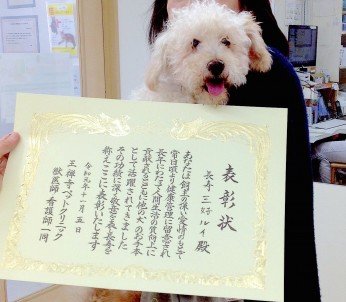 表彰状
長寿 三好ルイ 殿
あなたは飼主の深い愛情のもとで
常日頃より健康管理に留意され
長年にわたる人間生活の質向上に
貢献されると共に他の犬のお手本
として活躍されてきました
その功績に深く敬意を表し長寿を
称えここに表彰いたします
令和元年十一月五日
王禅寺ペットクリニック
獣医師 看護師一同